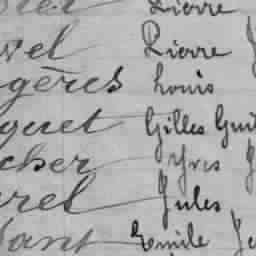 Pierre
vel Pierre J
gères Louis
quet Gilles Guil
cher Yves J
rel Jules
sant Emile Je